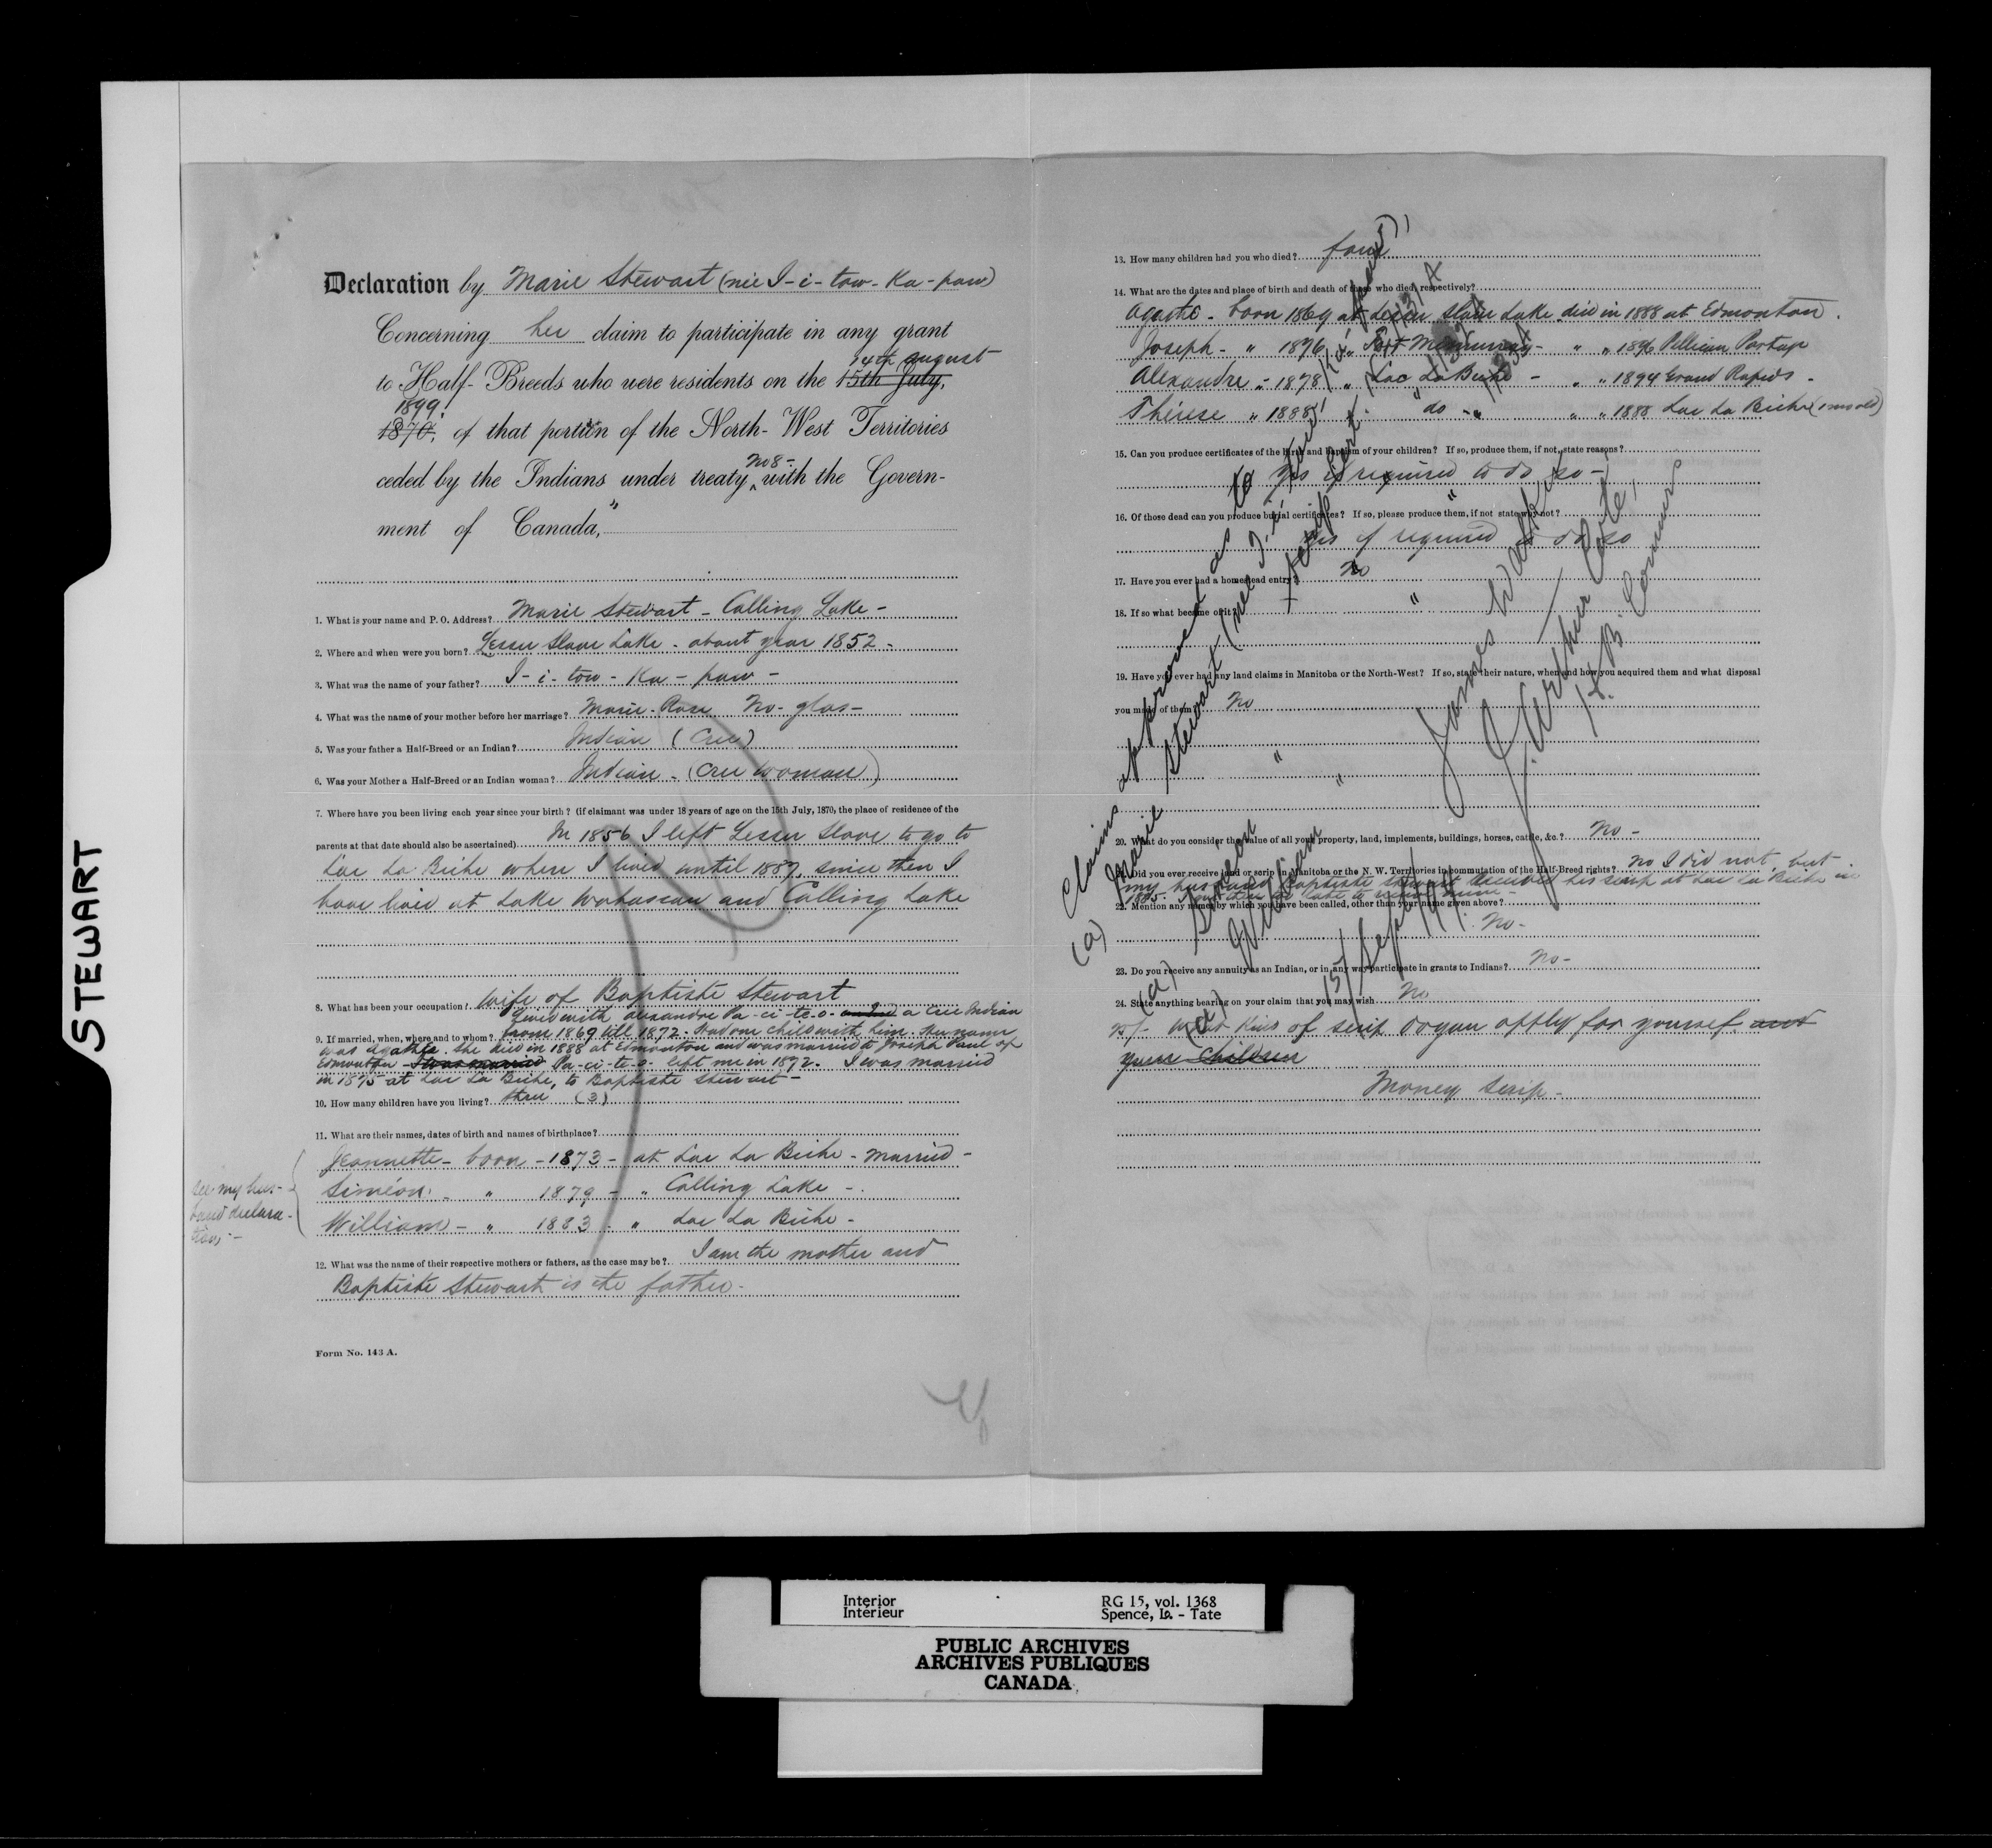 STEWART
Declaration by Marie Stewart (née I-i-tow-Ka-paw)
Concerning her claim to participate in any grant
14th august
to Half-Breeds who were residents on the 15th July,
1899
1870, of that portion of the North-West Territories
No 8-
ceded by the Indians under treaty with the Govern-
ment of Canada,
1. What is your name and P. O. Address? Marie Stewart - Calling Lake -
2. Where and when were you born? Lesser Slave Lake - about year 1852 -
3. What was the name of your father? I-i-tow-Ka-paw -
4. What was the name of your mother before her marriage? Marie-Rose No-glas-
5. Was your father a Half-Breed or an Indian? Indian (Cree)
6. Was your Mother a Half-Breed or an Indian woman? Indian - (Cree woman)
7. Where have you been living each year since your birth? (if claimant was under 18 years of age on the 15th July, 1870, the place of residence of the
parents at that date should also be ascertained) In 1856 I left Lesser Slave to go to
Lac La Biche where I lived until 1889, since then I
have lived at Lake Wabascaw and Calling Lake
8. What has been your occupation? Wife of Baptiste Stewart
Lived with Alexandre Pa-ci-te-o- a Cree Indian
9. If married, when, where and to whom? from 1869 till 1872. Had one child with him. Her name
was Agathe. She died in 1888 at Edmonton and was married to Joseph Paul of
Edmonton - I was married Pa-ci-te-o- left me in 1872. I was married
in 1875 at Lac La Biche, to Baptiste Stewart -
10. How many children have you living? three (3)
11. What are their names, dates of birth and names of birthplace?
Jeannette - born - 1873 - at Lac La Biche - married -
Siméon - " 1879 - " Calling Lake -
William - " 1883 - " Lac La Biche -
see my hus-
band declara-
tion -
12. What was the name of their respective mothers or fathers, as the case may be? I am the mother and
Baptiste Stewart is the father -
Form No. 143 A.
13. How many children had you who died? four
14. What are the dates and place of birth and death of those who died, respectively?
Agathe - born 1869 at Lesser Slave Lake died in 1888 at Edmonton.
Joseph - " 1876 " Fort McMurray - " " 1896 Pellican Portage
Alexandre " 1878 " Lac La Biche - " " 1894 Grand Rapids -
Thérese " 1888 " do - " " 1888 Lac La Biche
15. Can you produce certificates of the birth and baptism of your children? If so, produce them, if not, state reasons?
Yes if required to do so -
16. Of those dead can you produce burial certificates? If so, please produce them, if not state why not?
Yes if required to do so
17. Have you ever had a homestead entry? No
18. If so what became of it? "
19. Have you ever had any land claims in Manitoba or the North-West? If so, state their nature, when and how you acquired them and what disposal
you made of them? No
" "
20. What do you consider the value of all your property, land, implements, buildings, horses, cattle, &c.? No -
21. Did you ever receive land or scrip in Manitoba or the N. W. Territories in commutation of the Half-Breed rights? No I did not, but
my husband Baptiste Stewart received his scrip at Lac La Biche in
1885.
22. Mention any names by which you have been called, other than your name given above?
No -
23. Do you receive any annuity as an Indian, or in any way participate in grants to Indians? No -
24. State anything bearing on your claim that you may wish No
25/- What kind of scrip do you apply for yourself and
your children
Money Scrip -
Claims approved as to
(a) Marie Stewart (née I-i-tow-Ka-paw)
(a) Simeon
(a) William
15/Sept/99.
James Walker
J. Arthur Coté,
H. B. Comrs
Interior
Intérieur
RG 15, vol. 1368
Spence, Is. - Tate
PUBLIC ARCHIVES
ARCHIVES PUBLIQUES
CANADA